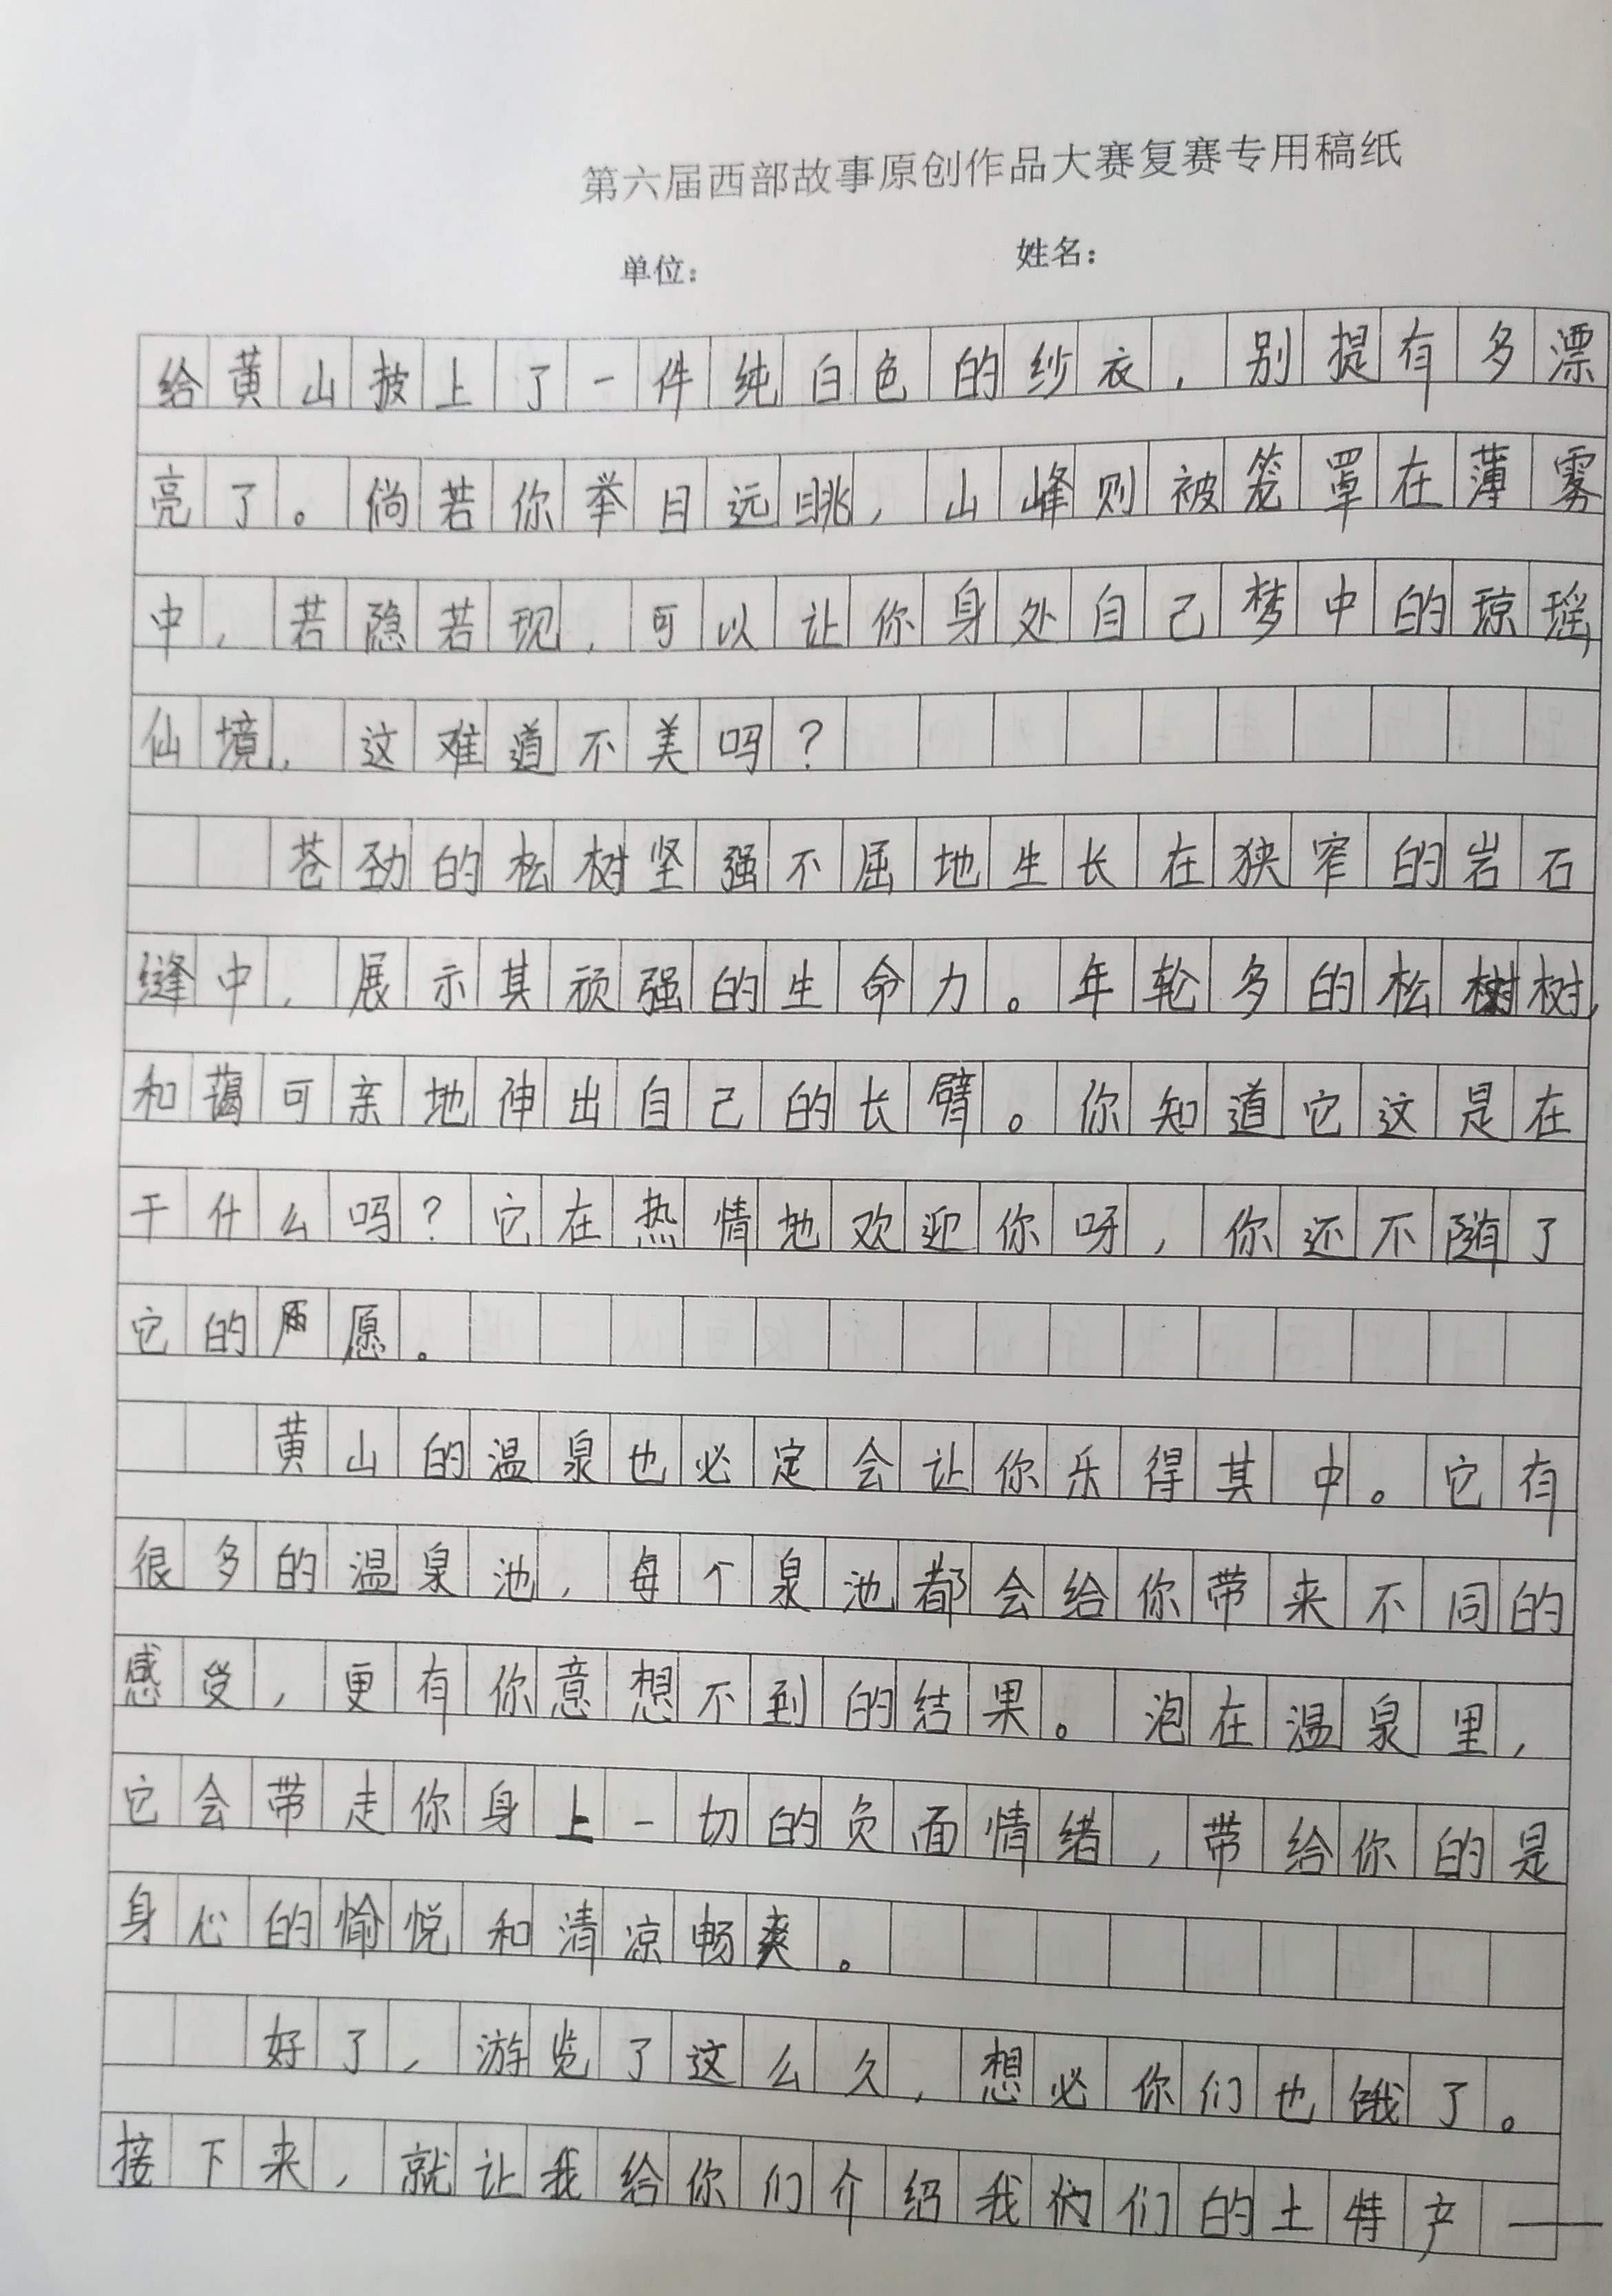 第六届西部故事原创作品大赛复赛专用稿纸
单位： 姓名：
给黄山披上了一件纯白色的纱衣，别提有多漂
亮了。倘若你举目远眺，山峰则被笼罩在薄雾
中，若隐若现，可以让你身处自己梦中的琼瑶
仙境，这难道不美吗？
苍劲的松树坚强不屈地生长在狭窄的岩石
缝中，展示其顽强的生命力。年轮多的松树，
和蔼可亲地伸出自己的长臂。你知道它这是在
干什么吗？它在热情地欢迎你呀，你还不随了
它的愿。
黄山的温泉也必定会让你乐得其中。它有
很多的温泉池，每个泉池都会给你带来不同的
感受，更有你意想不到的结果。泡在温泉里，
它会带走你身上一切的负面情绪，带给你的是
身心的愉悦和清凉畅爽。
好了，游览了这么久，想必你们也饿了。
接下来，就让我给你们介绍我们的土特产——